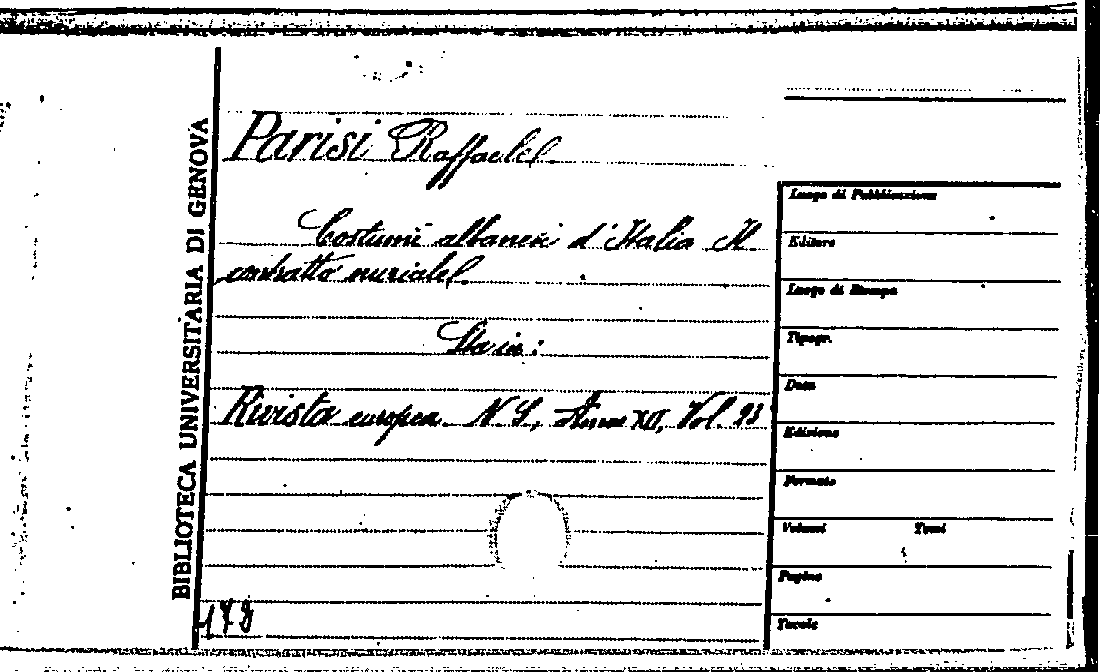 BIBLIOTECA UNIVERSITARIA DI GENOVA
Parisi Raffaele.
Costumi albanesi d'Italia Il
contratto nuziale.
Sta in:
Rivista europea. N. S., Anno XII, Vol. 23
178
Luogo di Pubblicazione
Editore
Luogo di Stampa
Tipogr.
Data
Edizione
Formato
Volumi Tomi
Pagine
Tavole